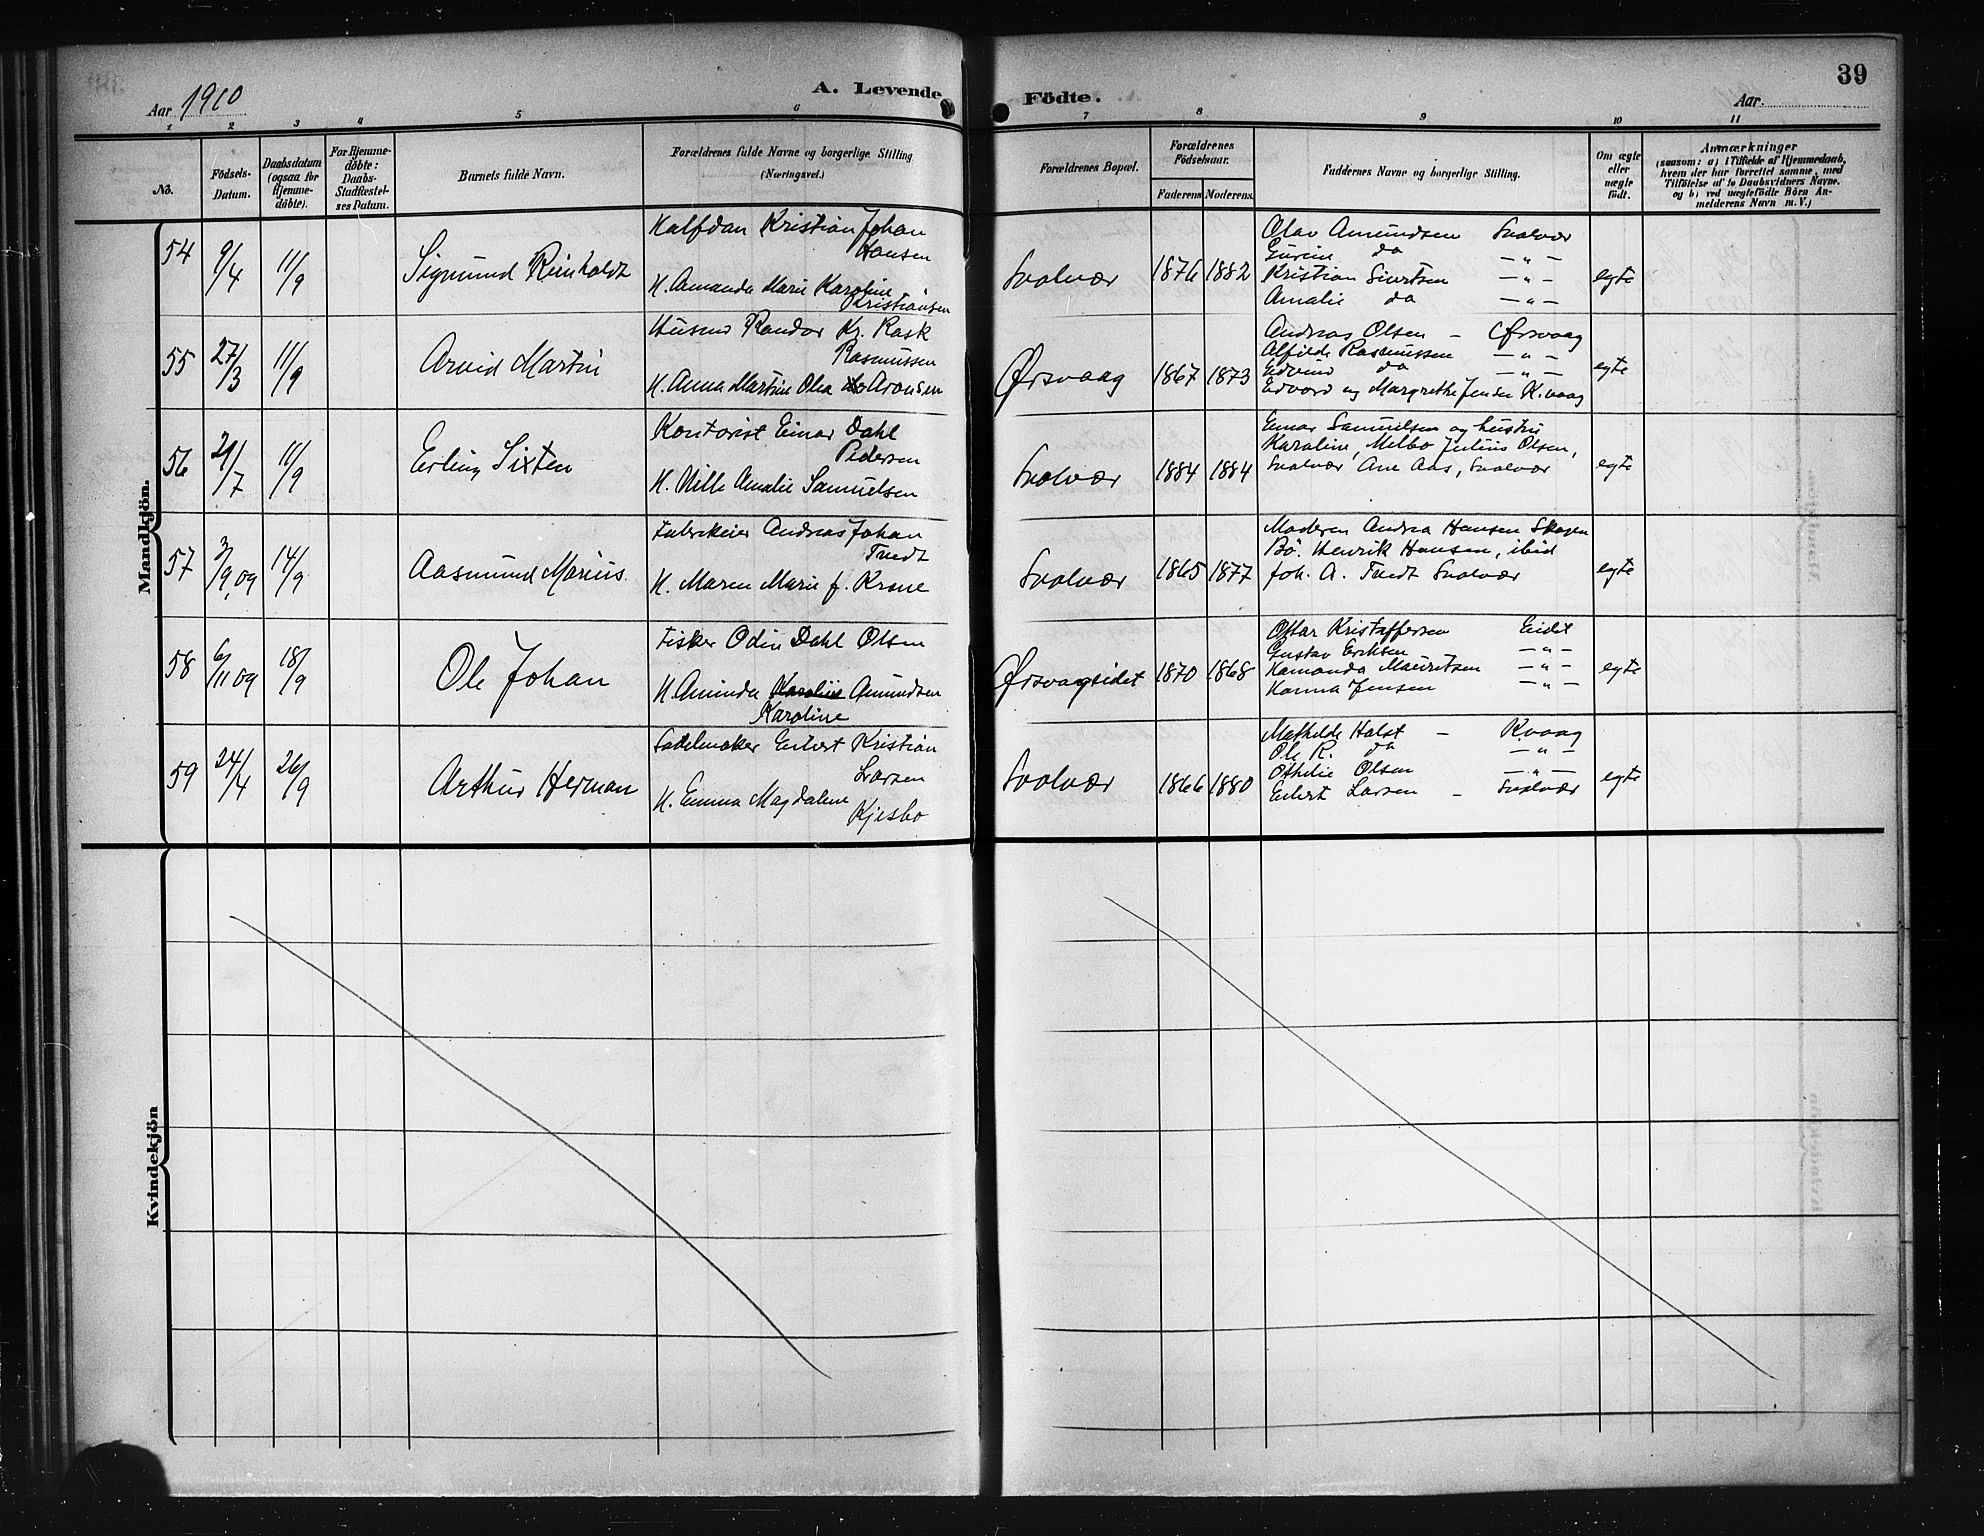 Aar 1910
A. Levende
Födte.
Aar.
39
1 2 3 4 5 6 7 8 9 10 11
No.
Födsels-
Datum.
Daabsdatum
(ogsaa for
Hjemme-
döbte).
For Hjemme-
döbte:
Daabs-
Stadfæstel-
ses Datum.
Barnets fulde Navn.
Forældrenes fulde Navne og borgerlige Stilling
(Næringsvei.)
Forældrenes Bopæl.
Forældrenes
Födselsaar.
Faderens
Moderens.
Faddernes Navne og borgerlige Stilling.
Om ægte
eller
uægte
født.
Anmærkninger
(saasom: a) i Tilfælde af Hjemmedaab,
hvem der har forrettet samme, med
Tilföielse af to Daabsvidners Navne.
og b) ved uægtefödte Börn An-
melderens Navn m. V.)
Mandkjön.
54
9/4
11/9
Sigmund Reinholdt
Halfdan Kristian Johan
Hansen
H. Amanda Marie Karoline
Kristiansen
Svolvær
1876
1882
Olav Amundsen Svolvær
Gurine do —"—
Kristian Sivertsen —"—
Amalie do —"—
egte
55
27/3
11/9
Arvid Martin
Husmd Randor Kr. Rask
Rasmussen
H. Anna Martine Olea Aronsen
Ørsvaag
1867
1873
Andreas Olsen – Ørsvaag
Alfilde Rasmussen —"—
Edvind do —"—
Edvard og Margrethe Jensen K.vaag
egte
56
21/7
11/9
Erling Sixten
Kontorist Einar Dahl
Pedersen
H. Mille Amalie Samuelsen
Svolvær
1884
1884
Einar Samuelsen og hustru
Karoline, Melbo Julius Olsen,
Svolvær Ane Aas, Svolvær
egte
57
3/9.09
14/9
Aasmund Marius.
Fabrikeier Andreas Johan
Tvedt
H. Maren Marie f. Krane
Svolvær
1865
1877
Moderen Andrea Hansen Skagen
Bø. Henrik Hansen, ibid
Joh. A. Tvedt Svolvær
egte
58
6/11 09
18/9
Ole Johan
Fisker Odin Dahl Olsen
H. Aminda Karoline Amundsen
Karoline
Ørsvagsidet
1870
1868
Ottar Kristoffersen Eidet
Gustav Eriksen —"—
Hamanda Mauritsen —"—
Hanna Jensen —"—
egte
59
24/4
26/9
Arthur Herman
Sadelmaker Eilert Kristian
Larsen
H. Emma Magdalene
Kjesbo
Svolvær
1866
1880
Mathilde Holst – K.vaag
Ole R. do —"—
Othelie Olsen —"—
Eilert Larsen – Svolvær
egte
Kvindekjön